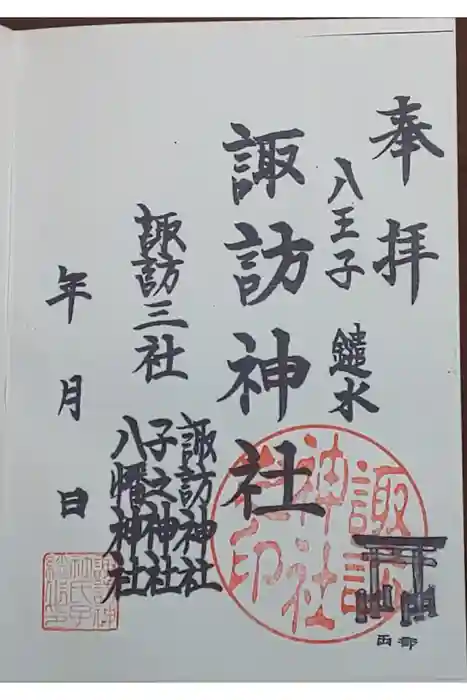 奉拝
八王子 鑓水
諏訪神社
諏訪三社
諏訪神社
子之神社
八幡神社
年月日
諏訪
神社
之印